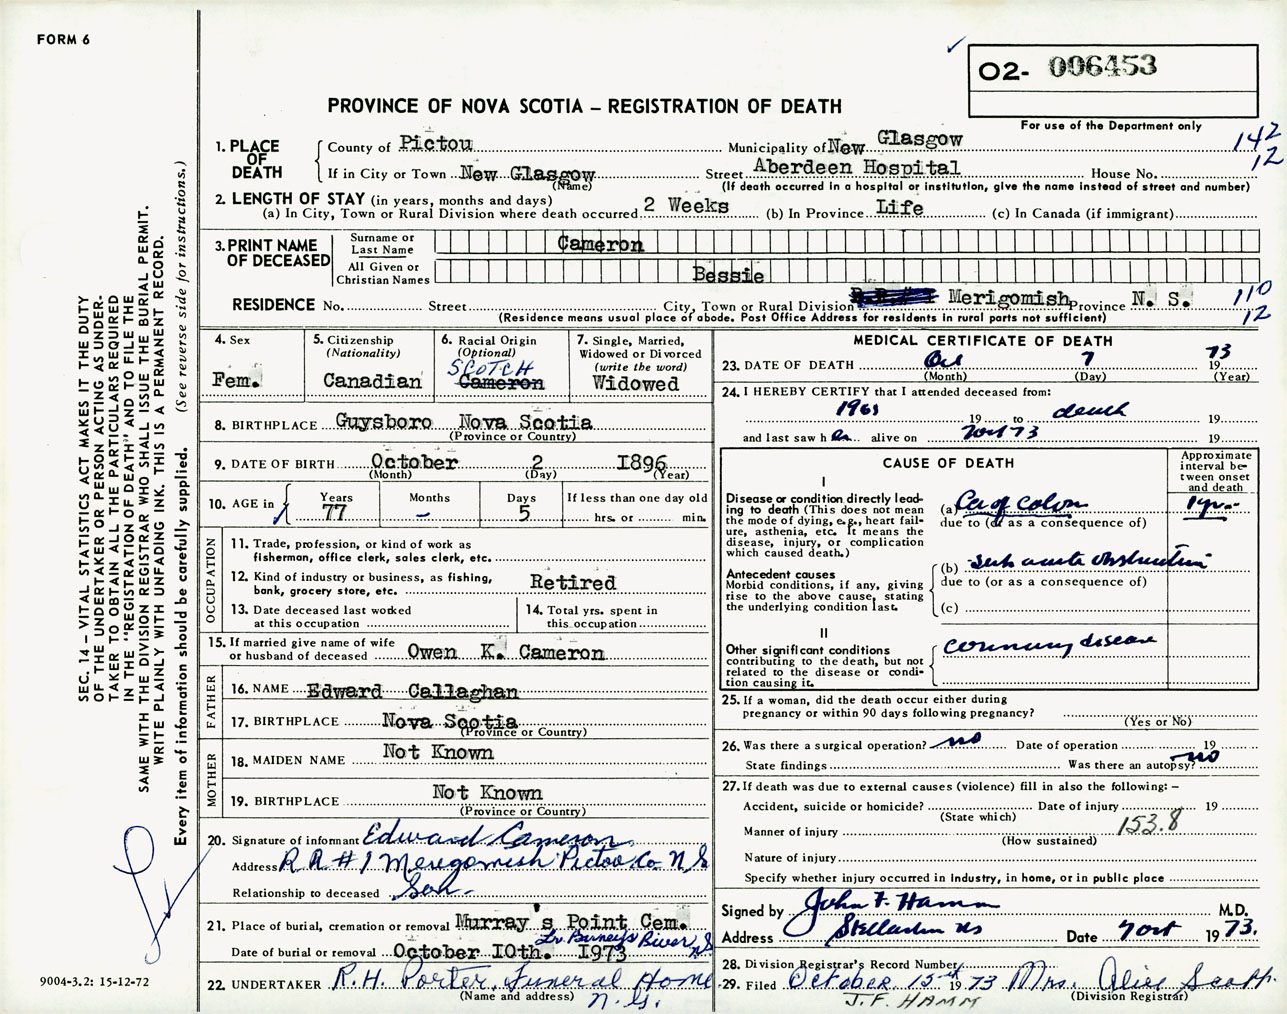 FORM 6
O2- 006453
PROVINCE OF NOVA SCOTIA – REGISTRATION OF DEATH
For use of the Department only
1. PLACE OF DEATH
County of Pictou Municipality of New Glasgow 142
If in City or Town New Glasgow Street Aberdeen Hospital House No. 12
(Name) (If death occurred in a hospital or institution, give the name instead of street and number)
2. LENGTH OF STAY (in years, months and days)
(a) In City, Town or Rural Division where death occurred 2 Weeks (b) In Province Life (c) In Canada (if immigrant)
3. PRINT NAME OF DECEASED
Surname or Last Name Cameron
All Given or Christian Names Bessie
RESIDENCE No. Street City, Town or Rural Division R.R.# 1 Merigomish Province N. S. 110
(Residence means usual place of abode. Post Office Address for residents in rural parts not sufficient) 12
4. Sex
Fem.
5. Citizenship
(Nationality)
Canadian
6. Racial Origin
(Optional)
SCOTCH
Cameron
7. Single, Married,
Widowed or Divorced
(write the word)
Widowed
8. BIRTHPLACE Guysboro Nova Scotia
(Province or Country)
9. DATE OF BIRTH October 2 1896
(Month) (Day) (Year)
10. AGE in
Years Months Days If less than one day old
77 – 5 hrs. or min.
OCCUPATION
11. Trade, profession, or kind of work as
fisherman, office clerk, sales clerk, etc.
12. Kind of industry or business, as fishing,
bank, grocery store, etc. Retired
13. Date deceased last worked
at this occupation
14. Total yrs. spent in
this occupation
15. If married give name of wife
or husband of deceased Owen K. Cameron
FATHER
16. NAME Edward Callaghan
17. BIRTHPLACE Nova Scotia
(Province or Country)
MOTHER
18. MAIDEN NAME Not Known
19. BIRTHPLACE Not Known
(Province or Country)
20. Signature of informant Edward Cameron
Address R R #1 Merigomish Pictou Co. N S
Relationship to deceased Son.
21. Place of burial, cremation or removal Murray's Point Cem.
Lr. Barneys River N S
Date of burial or removal October 10th. 1973
22. UNDERTAKER R.H. Porter, Funeral Home
(Name and address) N.G.
MEDICAL CERTIFICATE OF DEATH
23. DATE OF DEATH Oct 7 19 73
(Month) (Day) (Year)
24. I HEREBY CERTIFY that I attended deceased from:
1961 19 to death 19
and last saw her alive on 7 Oct 73 19
CAUSE OF DEATH
Approximate interval between onset and death
I
Disease or condition directly lead-
ing to death (This does not mean
the mode of dying, e.g., heart fail-
ure, asthenia, etc. It means the
disease, injury, or complication
which caused death.)
(a) Ca of colon 1 yr.
due to (or as a consequence of)
Antecedent causes
Morbid conditions, if any, giving
rise to the above cause, stating
the underlying condition last.
(b) sub acute obstruction
due to (or as a consequence of)
(c)
II
Other significant conditions
contributing to the death, but not
related to the disease or condi-
tion causing it.
coronary disease
25. If a woman, did the death occur either during
pregnancy or within 90 days following pregnancy?
(Yes or No)
26. Was there a surgical operation? no Date of operation 19
State findings Was there an autopsy? no
27. If death was due to external causes (violence) fill in also the following: –
Accident, suicide or homicide? Date of injury 19
(State which)
Manner of injury 153.8
(How sustained)
Nature of injury
Specify whether injury occurred in industry, in home, or in public place
Signed by John F. Hamm M.D.
Address Stellarton NS Date 7 Oct 19 73.
28. Division Registrar's Record Number
29. Filed October 15th 19 73 Mrs. Alice Scott
J.F. HAMM (Division Registrar)
SEC. 14 – VITAL STATISTICS ACT MAKES IT THE DUTY
OF THE UNDERTAKER OR PERSON ACTING AS UNDER-
TAKER TO OBTAIN ALL THE PARTICULARS REQUIRED
IN THE "REGISTRATION OF DEATH" AND TO FILE THE
SAME WITH THE DIVISION REGISTRAR WHO SHALL ISSUE THE BURIAL PERMIT.
WRITE PLAINLY WITH UNFADING INK. THIS IS A PERMANENT RECORD.
Every item of information should be carefully supplied. (See reverse side for instructions.)
9004-3.2: 15-12-72